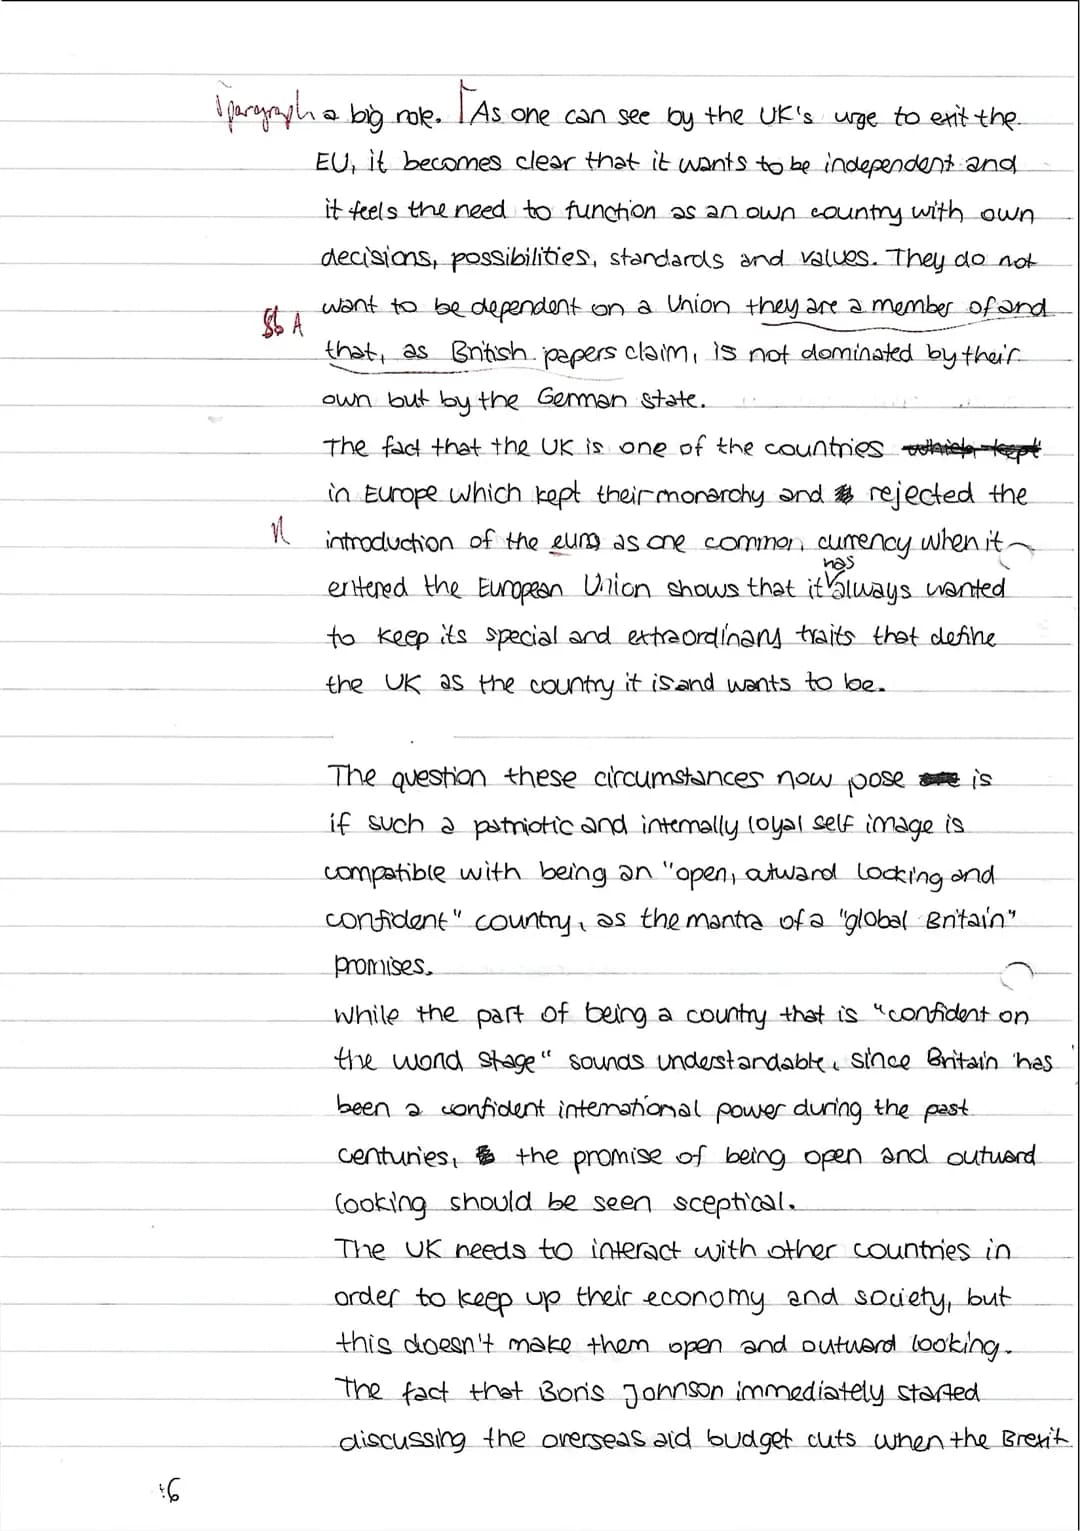 paragraph a big role. As one can see by the UK's urge to exit the
EU, it becomes clear that it wants to be independent and
it feels the need to function as an own country with own
decisions, possibilities, standards and values. They do not
want to be dependent on a Union they are a member of and
A
that, as British papers claim, is not dominated by their
own but by the German state.
The fact that the UK is one of the countries which kept
in Europe which kept their monarchy and rejected the
introduction of the euro as one common currency when it
has
entered the European Union shows that it always wanted
to keep its special and extraordinary traits that define
the UK as the country it is and wants to be.
The question these circumstances now pose is
if such a patriotic and internally loyal self image is
compatible with being an "open, outward looking and
confident" country, as the mantra of a "global Britain"
promises.
While the part of being a country that is "confident on
the world stage" sounds understandable, since Britain has
been a confident international power during the past
centuries, the promise of being open and outward
looking should be seen sceptical.
The UK needs to interact with other countries in
order to keep up their economy and society, but
this doesn't make them open and outward looking.
The fact that Boris Johnson immediately started
discussing the overseas aid budget cuts when the Brexit